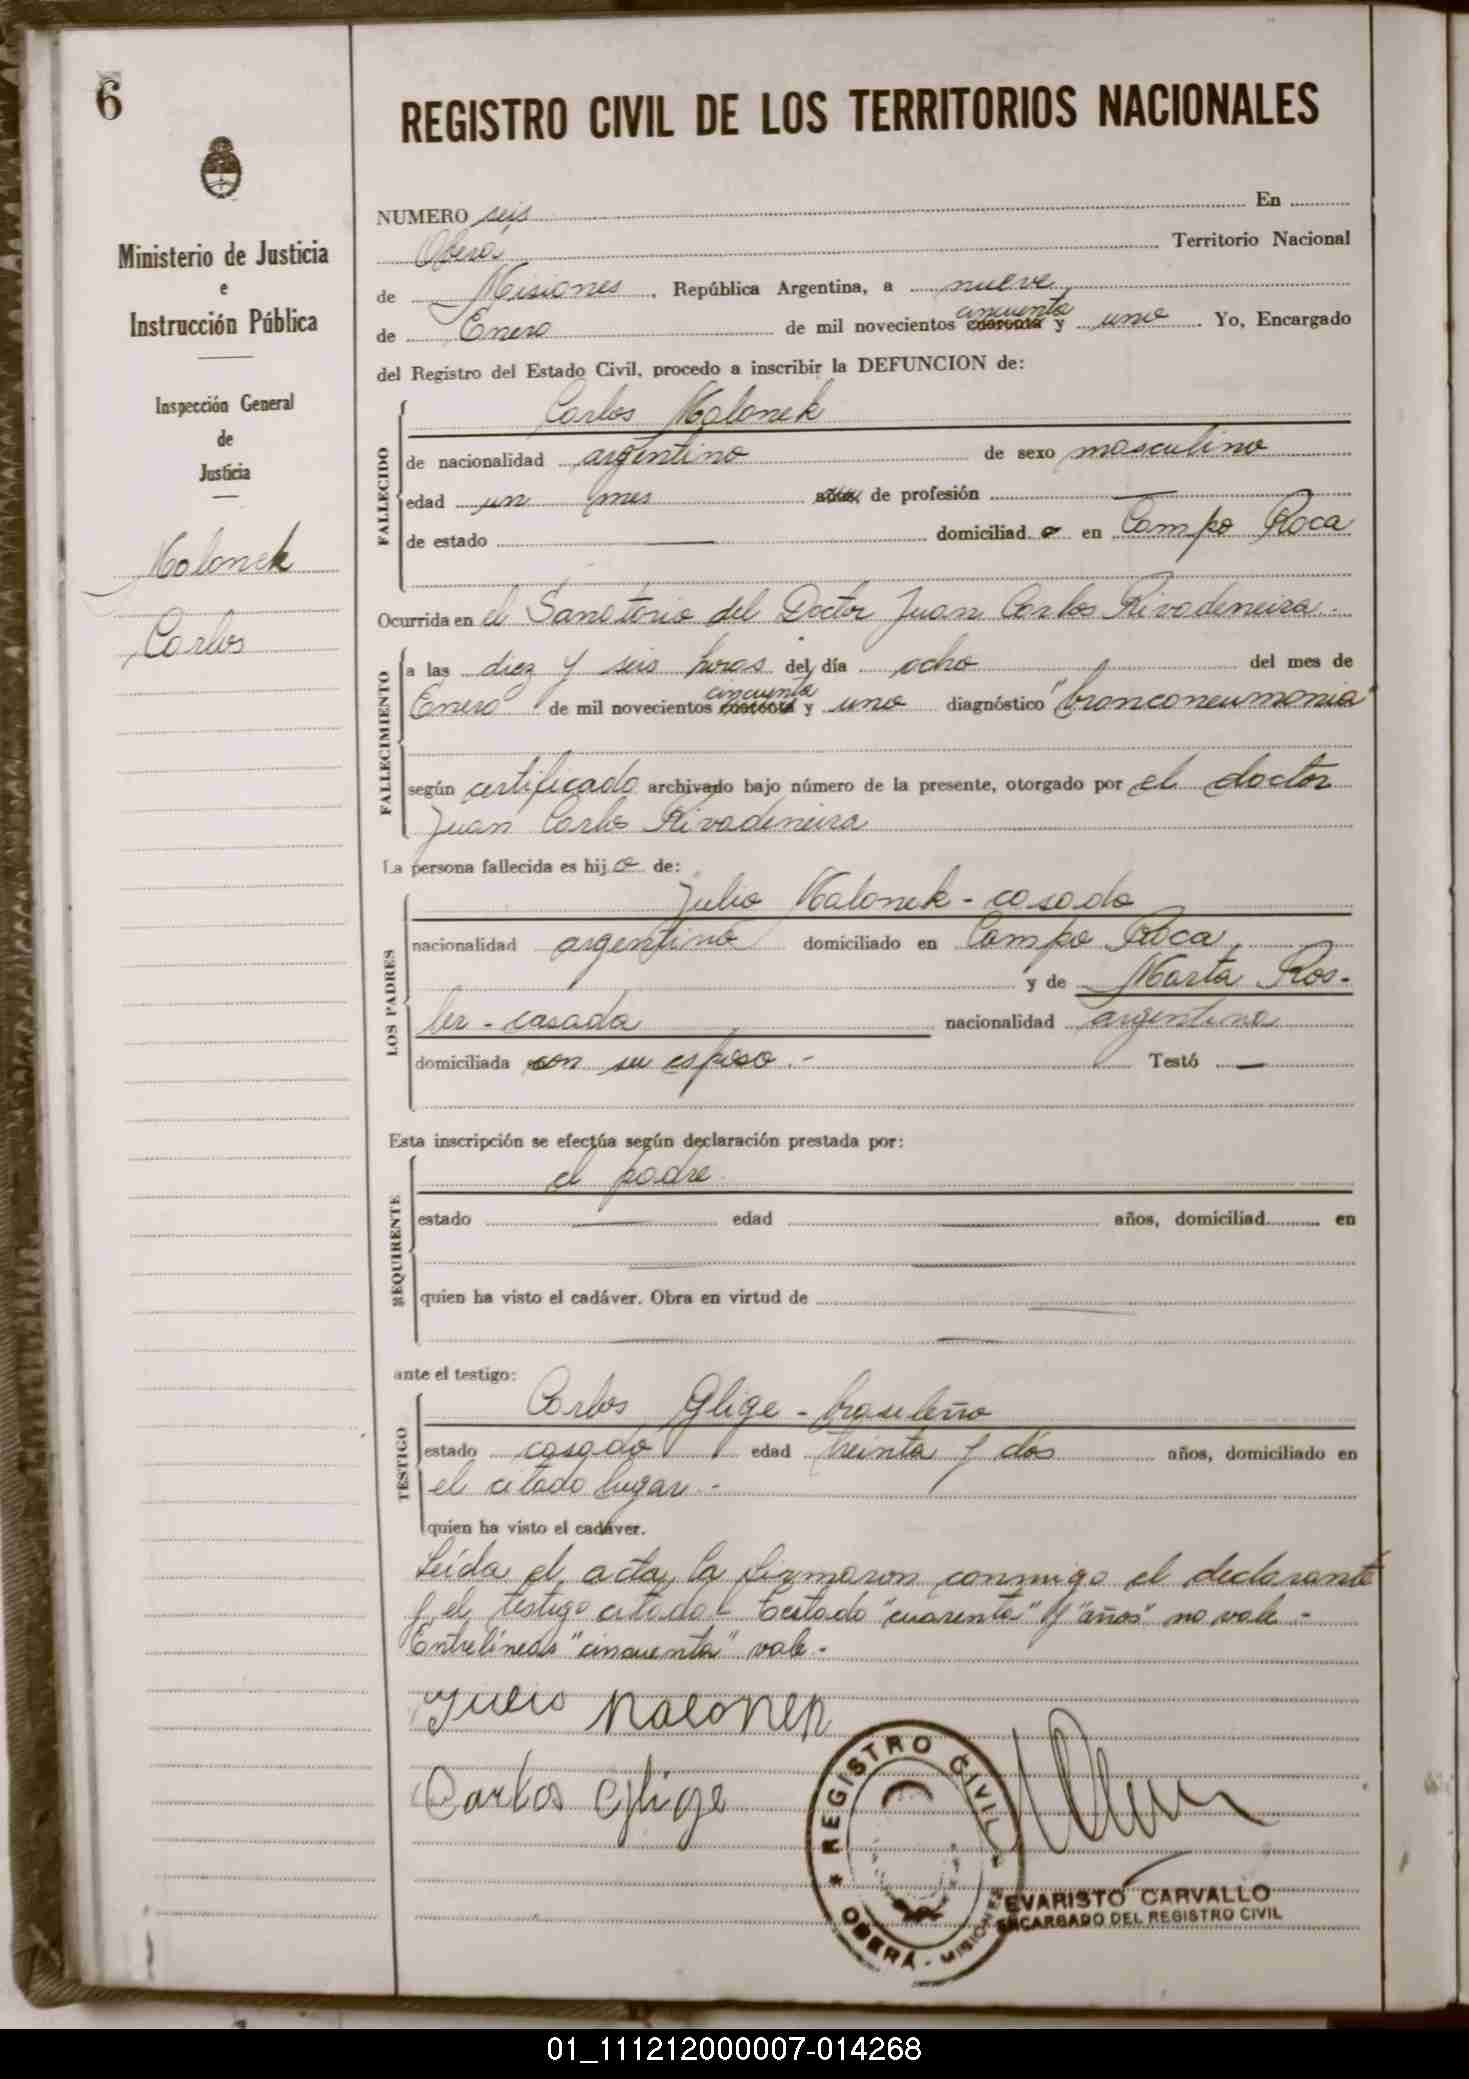 6
REGISTRO CIVIL DE LOS TERRITORIOS NACIONALES
Ministerio de Justicia
e
Instrucción Pública
Inspección General
de
Justicia
Malonek
Carlos
NUMERO seis En
Oberá Territorio Nacional
de Misiones, República Argentina, a nueve
de Enero de mil novecientos cuarenta cincuenta y uno. Yo, Encargado
del Registro del Estado Civil, procedo a inscribir la DEFUNCION de:
FALLECIDO
Carlos Malonek
de nacionalidad argentino de sexo masculino
edad un mes años, de profesión —
de estado — domiciliado en Campo Roca
Ocurrida en el Sanatorio del Doctor Juan Carlos Rivadeneira.-
FALLECIMIENTO
a las diez y seis horas del día ocho del mes de
Enero de mil novecientos cuarenta cincuenta y uno diagnóstico "bronconeumonia"
según certificado archivado bajo número de la presente, otorgado por el doctor
Juan Carlos Rivadeneira
La persona fallecida es hijo de:
LOS PADRES
Julio Malonek - casado
nacionalidad argentino domiciliado en Campo Roca
y de Marta Ros-
ler - casada nacionalidad argentina
domiciliada con su esposo.- Testó —
Esta inscripción se efectúa según declaración prestada por:
REQUIRENTE
el padre
estado — edad — años, domiciliad en
quien ha visto el cadáver. Obra en virtud de —
ante el testigo:
TESTIGO
Carlos Glige - brasileño
estado casado edad treinta y dos años, domiciliado en
el citado lugar.-
quien ha visto el cadáver.
Leída el acta, la firmaron conmigo el declarante
y el testigo citado - Testado "cuarenta" y "años" no vale -
Entrelíneas "cincuenta" vale.-
Julio Malonek
Carlos Glige
REGISTRO CIVIL
OBERÁ - MISIONES
EVARISTO CARVALLO
ENCARGADO DEL REGISTRO CIVIL
01_111212000007-014268